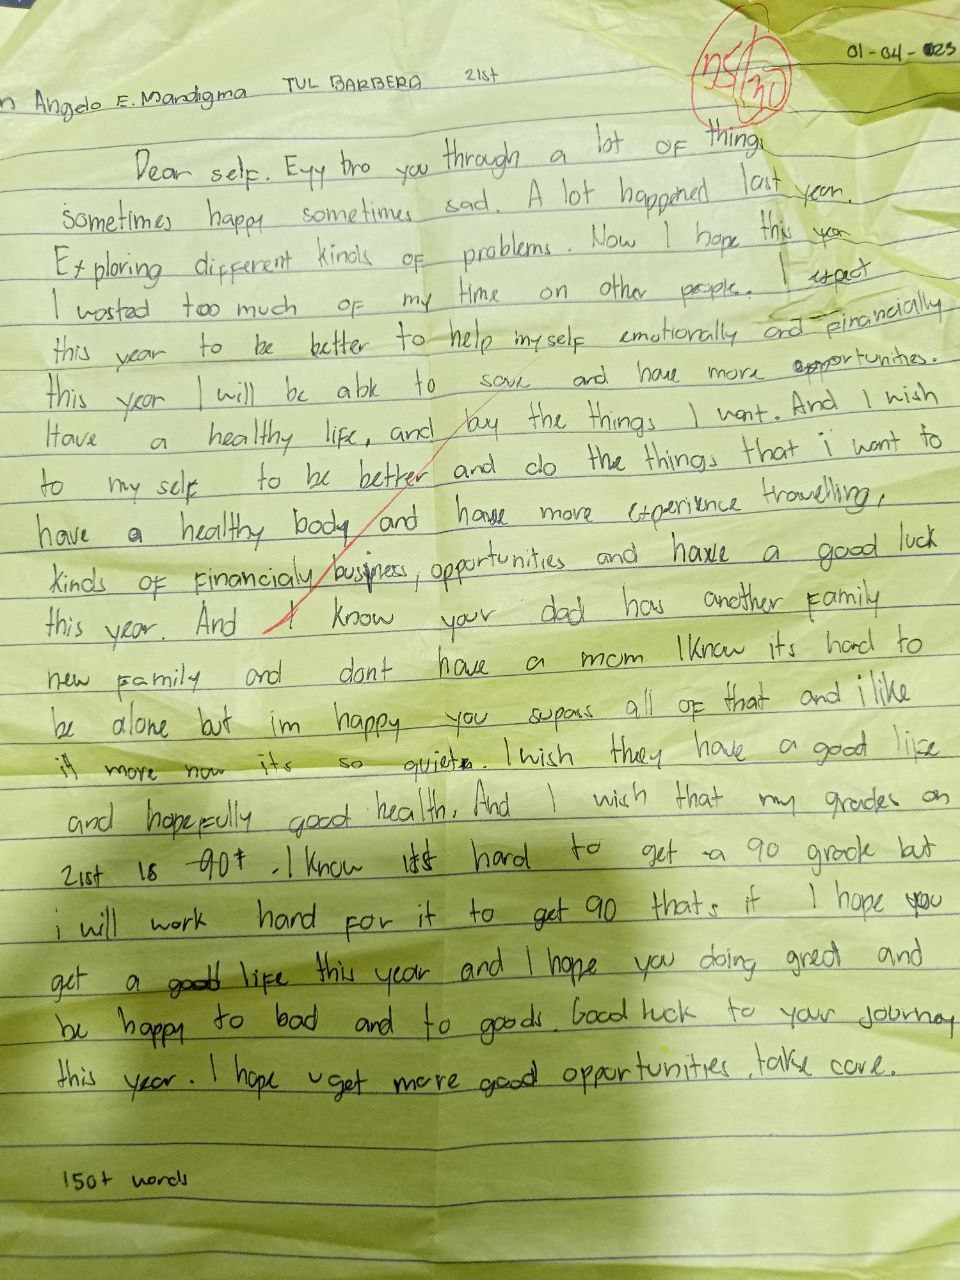 01-04-023
25/30
n Angelo E. Mandigma TUL BARBERA 21st
Dear self. Eyy bro you through a lot of things
sometimes happy sometimes sad. A lot happened last year.
Exploring different kinds of problems. Now I hope this year
I wasted too much of my time on other people. I expact
this year to be better to help my self emotionally and financially
this year I will be able to save and have more opportunities.
Have a healthy life, and buy the things I want. And I wish
to my self to be better and do the things that i want to
have a healthy body and have more experience travelling,
kinds of financialy business, opportunities and have a good luck
this year. And I know your dad has another family
new family and dont have a mom I know its hard to
be alone but im happy you supass all of that and i like
it more now its so quiet. I wish they have a good life
and hopefully good health. And I wish that my grades on
21st is 90+. I know its hard to get a 90 grade but
i will work hard for it to get 90 thats it I hope you
get a good life this year and I hope you doing great and
be happy to bad and to goods. Good luck to your journey
this year. I hope u get more good opportunities, take care.
150+ words